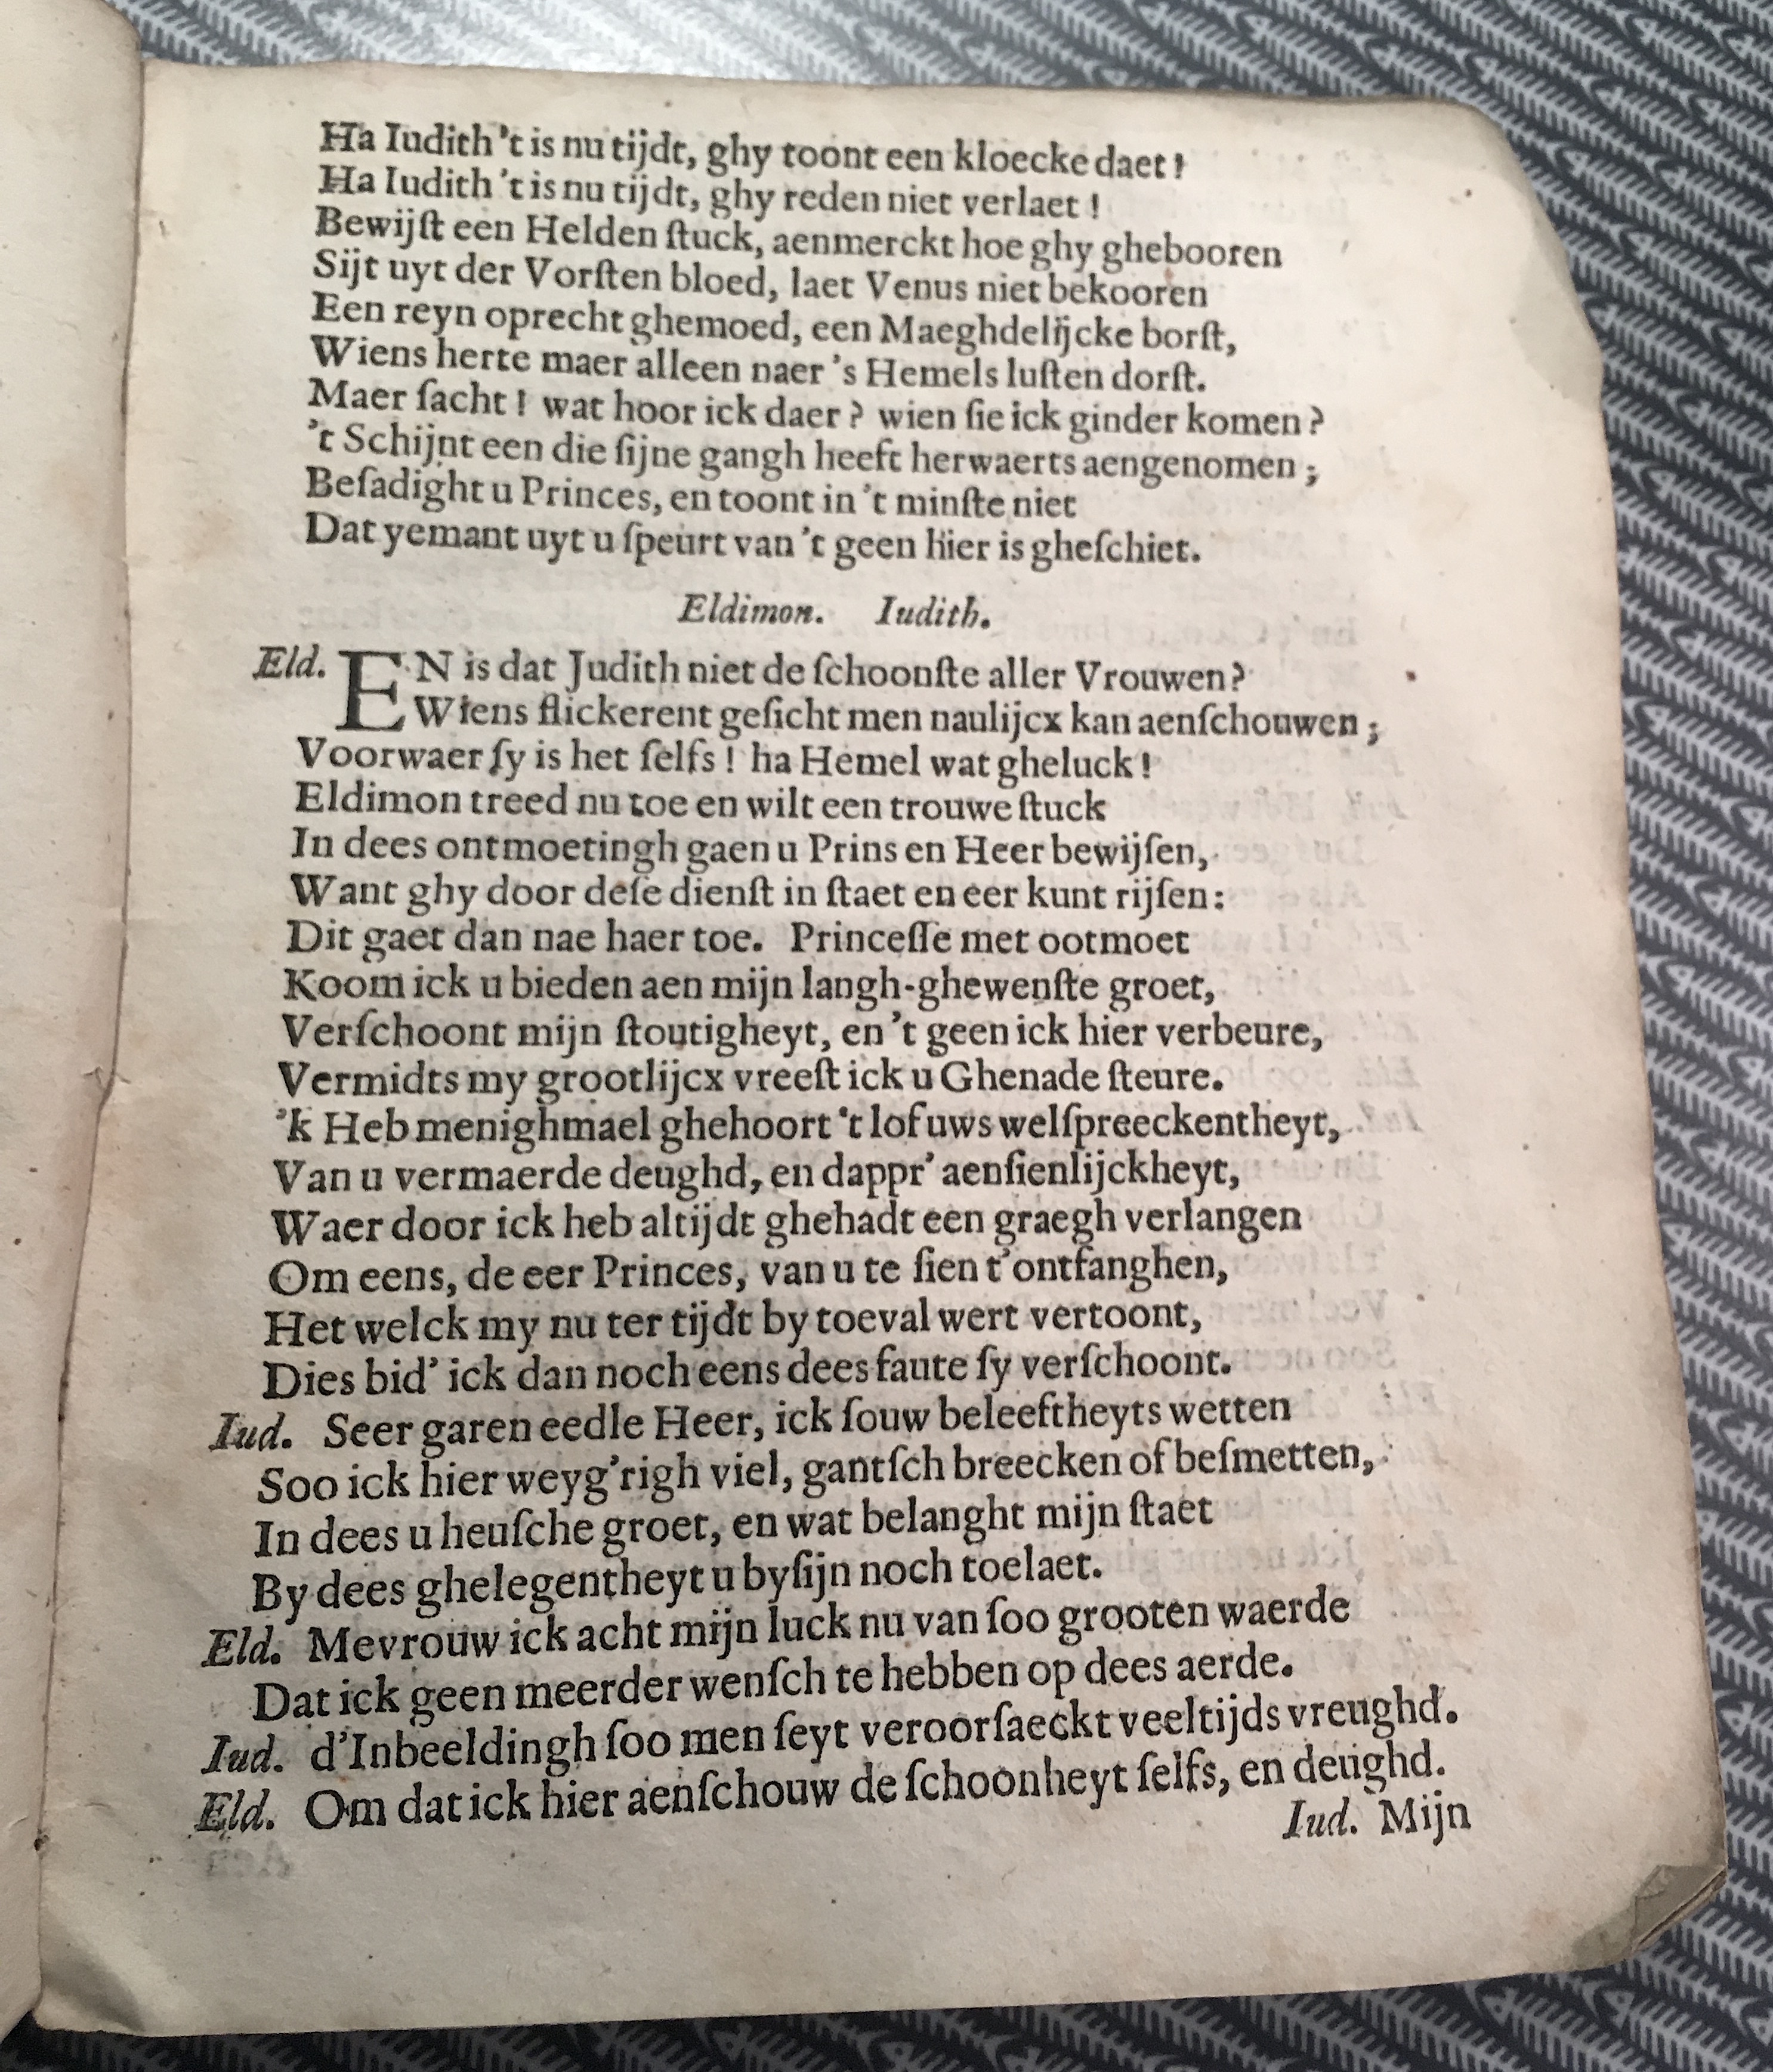 Ha Iudith 't is nu tijdt, ghy toont een kloecke daet !
Ha Iudith 't is nu tijdt, ghy reden niet verlaet !
Bewijſt een Helden ſtuck, aenmerckt hoe ghy ghebooren
Sijt uyt der Vorſten bloed, laet Venus niet bekooren
Een reyn oprecht ghemoed, een Maeghdelijcke borſt,
Wiens herte maer alleen naer 's Hemels luſten dorſt.
Maer ſacht ! wat hoor ick daer ? wien ſie ick ginder komen ?
't Schijnt een die ſijne gangh heeft herwaerts aengenomen ;
Beſadight u Princes, en toont in 't minſte niet
Dat yemant uyt u ſpeurt van 't geen hier is gheſchiet.
Eldimon. Iudith.
Eld. EN is dat Judith niet de ſchoonſte aller Vrouwen ?
Wiens flickerent geſicht men naulijcx kan aenſchouwen ;
Voorwaer ſy is het ſelfs ! ha Hemel wat gheluck !
Eldimon treed nu toe en wilt een trouwe ſtuck
In dees ontmoetingh gaen u Prins en Heer bewijſen,
Want ghy door deſe dienſt in ſtaet en eer kunt rijſen:
Dit gaet dan nae haer toe. Princeſſe met ootmoet
Koom ick u bieden aen mijn langh-ghewenſte groet,
Verſchoont mijn ſtoutigheyt, en 't geen ick hier verbeure,
Vermidts my grootlijcx vreeſt ick u Ghenade ſteure.
'k Heb menighmael ghehoort 't lof uws welſpreeckentheyt,
Van u vermaerde deughd, en dappr' aenſienlijckheyt,
Waer door ick heb altijdt ghehadt een graegh verlangen
Om eens, de eer Princes, van u te ſien t'ontfanghen,
Het welck my nu ter tijdt by toeval wert vertoont,
Dies bid' ick dan noch eens dees faute ſy verſchoont.
Iud. Seer garen eedle Heer, ick ſouw beleeftheyts wetten
Soo ick hier weyg'righ viel, gantſch breecken of beſmetten,
In dees u heuſche groet, en wat belanght mijn ſtaet
By dees ghelegentheyt u byſijn noch toelaet.
Eld. Mevrouw ick acht mijn luck nu van ſoo grooten waerde
Dat ick geen meerder wenſch te hebben op dees aerde.
Iud. d'Inbeeldingh ſoo men ſeyt veroorſaeckt veeltijds vreughd.
Eld. Om dat ick hier aenſchouw de ſchoonheyt ſelfs, en deughd.
Iud. Mijn